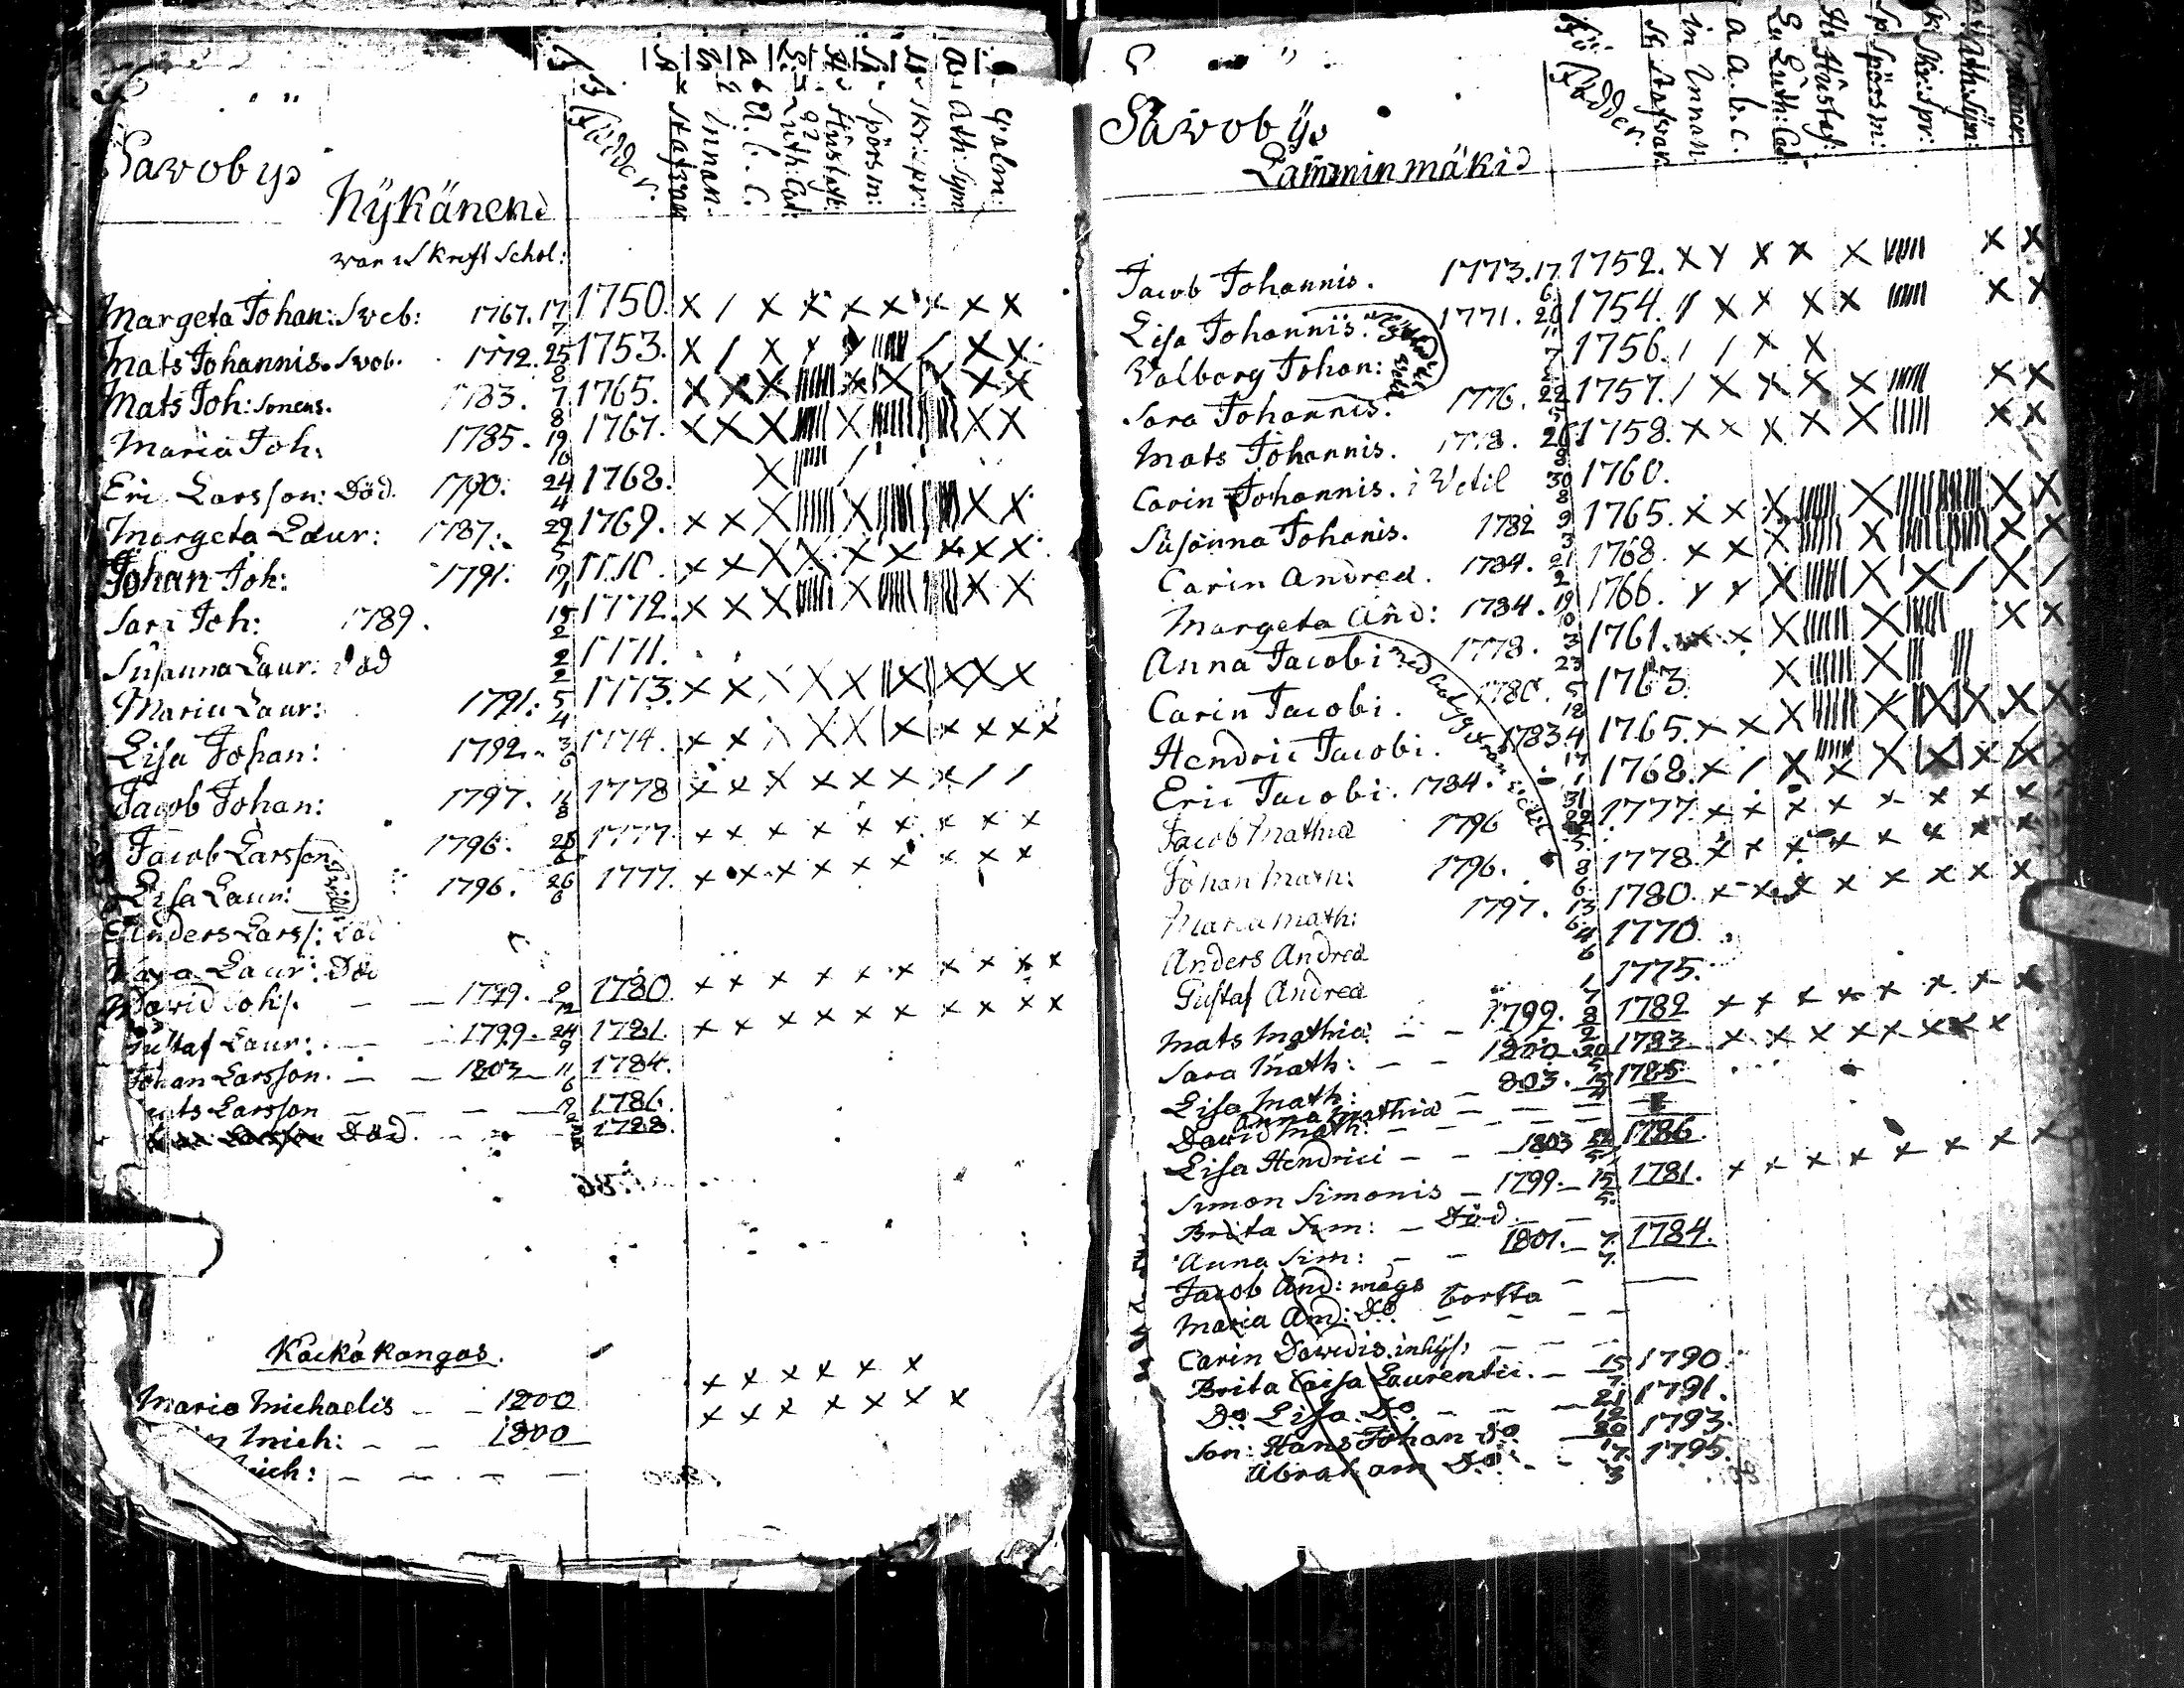 Savobys
Nykänend
war i Skrift Schol:
Födder.
Stafwar
Innan.
A. b. C.
Luth: Cat:
Hustafl:
Spörsm:
Skr: spr:
Ath: Sym:
Psalm:
Margeta Johan: Sveb: 1767. 17/7 1750.
Mats Johannis. Sveb. 1772. 25/8 1753.
Mats Joh: sonens. 1783. 7/8 1765.
Maria Joh. 1785. 19/10 1767.
Eric Larsson: Död. 1790. 24/4 1768.
Margeta Laur: 1787. 29/5 1769.
Johan Joh: 1791. 19
Sara Joh: 1789. 15/2 1772.
Susanna Laur: Död 2/2 1771.
Maria Laur: 1791. 5/4 1773.
Lisa Johan: 1792. 3/6 1774.
Jacob Johan: 1797. 11/8 1778
Jacob Larsson 1796. 26/6 1777.
Lisa Laur: 1796. 26/6 1777.
Anders Larss: Död
Laur: Död
David Johs. — — 1799. 2/12 1780.
Gustaf Laur: — — 1799. 24/9 1781.
Johan Larsson. — — 1803 — 11/6 1784.
Mats Larsson — — — — 1786.
Larsson Död. — — 1788.
Kackokangas.
Maria Michaelis — — 1800
Mich: — — 1800
Mich: — — — —
Savobys
Lamminmäkid
Födder.
Stafwar
Innan
A. b. c.
Luth: Cat:
Hustaf:
Spörsm:
Skr: spr:
Ath: Sym:
Jacob Johannis. 1773. 17/6 1752.
Lisa Johannis. 1771. 20/11 1754.
Valborg Johan: 7 1756.
Sara Johannis. 1776. 22/5 1757.
Mats Johannis. 1778. 26/8 1758.
Carin Johannis. i Vetil 30/8 1760.
Susanna Johanis. 1782 9/3 1765.
Carin Andreæ. 1784. 21/2 1768.
Margeta And: 1784. 19/10 1766.
Anna Jacobi 1778. 3/23 1761.
Carin Jacobi. 1780. 5/12 1763.
Hendric Jacobi. 1783. 4/17 1765.
Eric Jacobi. 1784. 1/31 1768.
Jacob Mathiæ 1796 1777.
Johan Math: 1796. 8/6. 1778.
Maria Math: 1797. 13/6. 1780.
Anders Andreæ 4/6 1770.
Gustaf Andreæ 1/7 1775.
Mats Mathiæ — — 1799. 8/2 1782
Sara Math: — — 1800. 20/5 1783
Lisa Math: — 803. 15/4 1785
Anna Mathiæ — — — —
David Math: — — — —
Lisa Hendrici — — 1803 1786.
Simon Simonis — 1799. — 15/5. 1781.
Brita Sim: — Död
Anna Sim: — — 1801. — 7/7. 1784.
Jacob And: mågs — —
Maria And: Do. bortta — —
Carin Davidis. inhys: — — —
Brita Caisa Laurentii. — 15/7. 1790.
Do. Lisa. Do — — — 21/12 1791.
Son: Hans Johan Do 20/1 1793.
Abraham Do — — 7/3 1795.